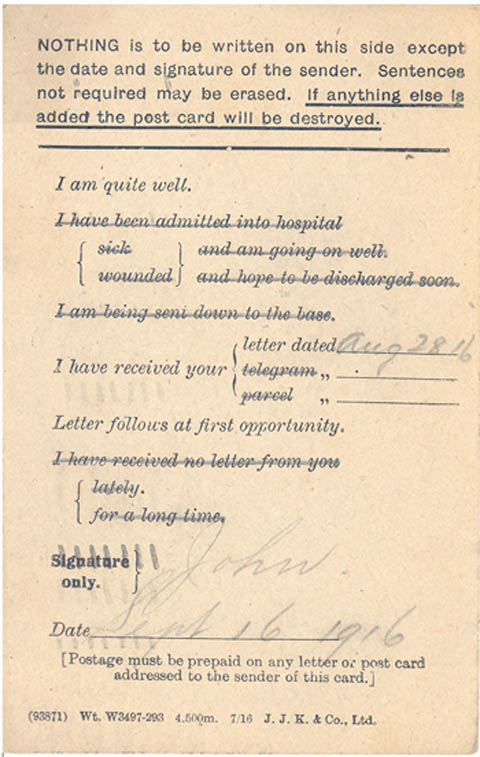 NOTHING is to be written on this side except
the date and signature of the sender. Sentences
not required may be erased. If anything else is
added the post card will be destroyed.
I am quite well.
I have been admitted into hospital
sick and am going on well.
wounded and hope to be discharged soon.
I am being sent down to the base.
letter dated Aug 28 16
I have received your telegram „
parcel „
Letter follows at first opportunity.
I have received no letter from you
lately.
for a long time.
Signature
only.
John.
Date Sept 16 1916
[Postage must be prepaid on any letter or post card
addressed to the sender of this card.]
(93871) Wt. W3497-293 4,500m. 7/16 J. J. K. & Co., Ltd.